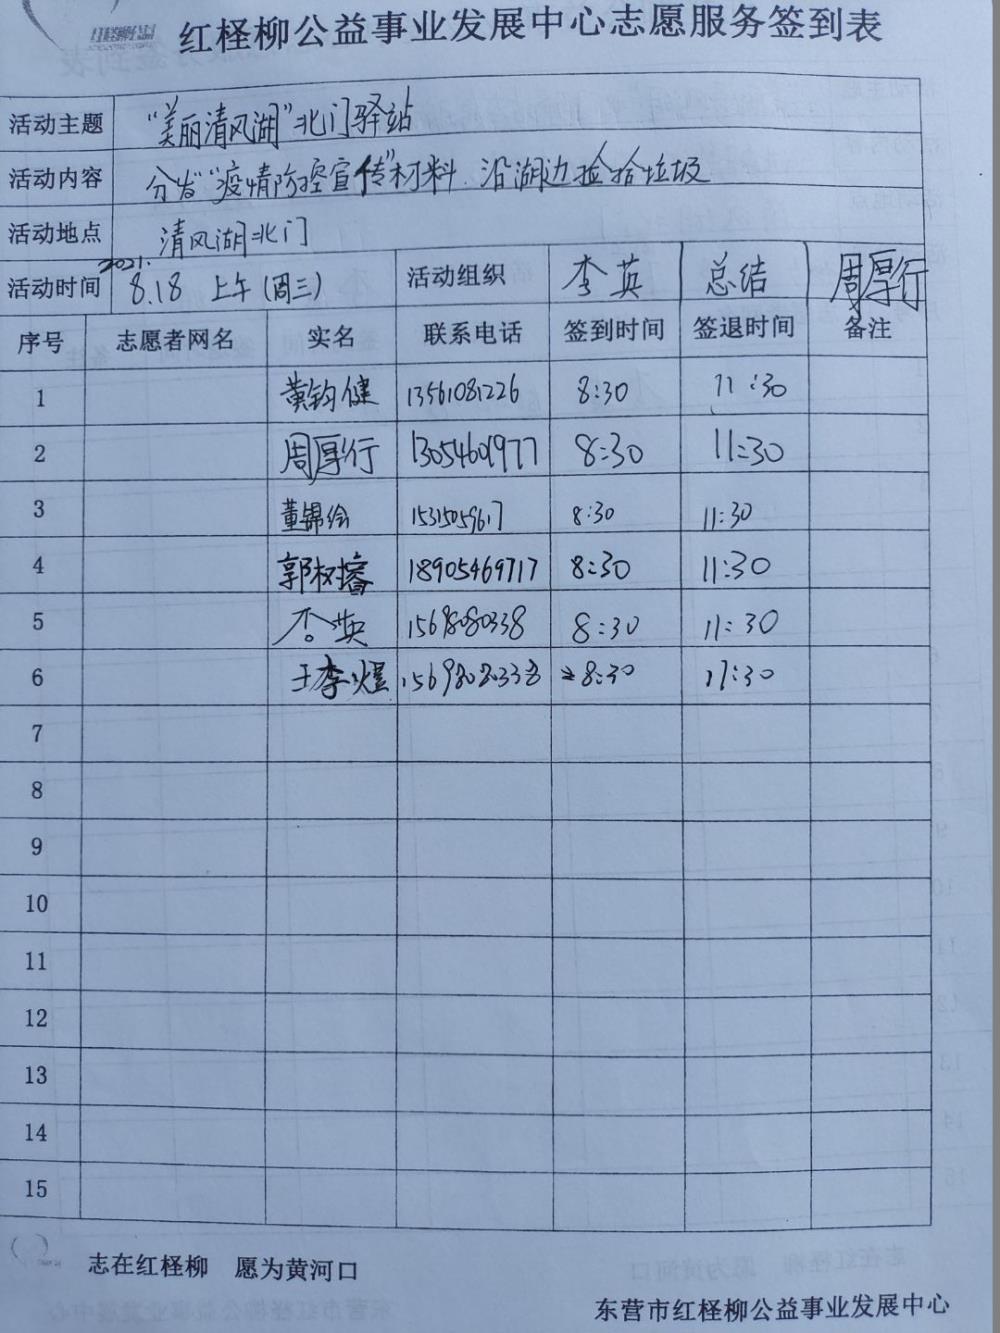 红柽柳公益事业发展中心志愿服务签到表
活动主题 "美丽清风湖"北门驿站
活动内容 分发"疫情防控宣传"材料.沿湖边捡拾垃圾
活动地点 清风湖北门
活动时间 2021. 8.18 上午(周三) 活动组织 李英 总结 周厚行
序号 志愿者网名 实名 联系电话 签到时间 签退时间 备注
1 黄钧健 13561081226 8:30 11:30
2 周厚行 13054601977 8:30 11:30
3 董锦绘 8:30 11:30
4 郭权睿 18905469717 8:30 11:30
5 李英 8:30 11:30
6 李煜 8:30 11:30
7
8
9
10
11
12
13
14
15
志在红柽柳 愿为黄河口
东营市红柽柳公益事业发展中心